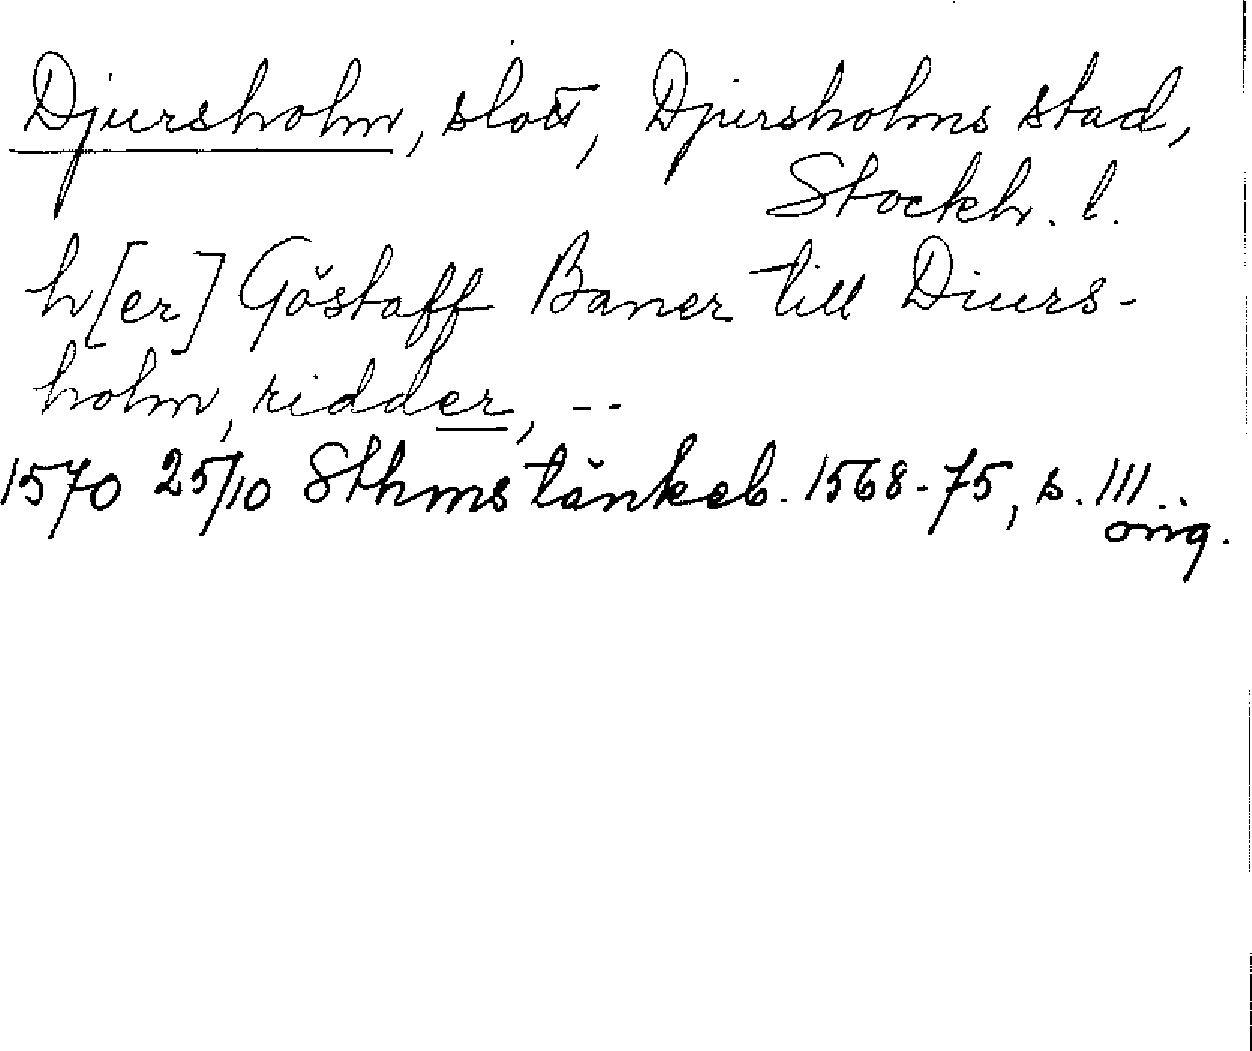 Djursholm, slott, Djursholms stad,
Stockh. l.
h[er] Göstaff Baner till Diurs-
holm, ridder, --
1570 25/10 Sthms tänkeb. 1568-75, s. 111.
orig.